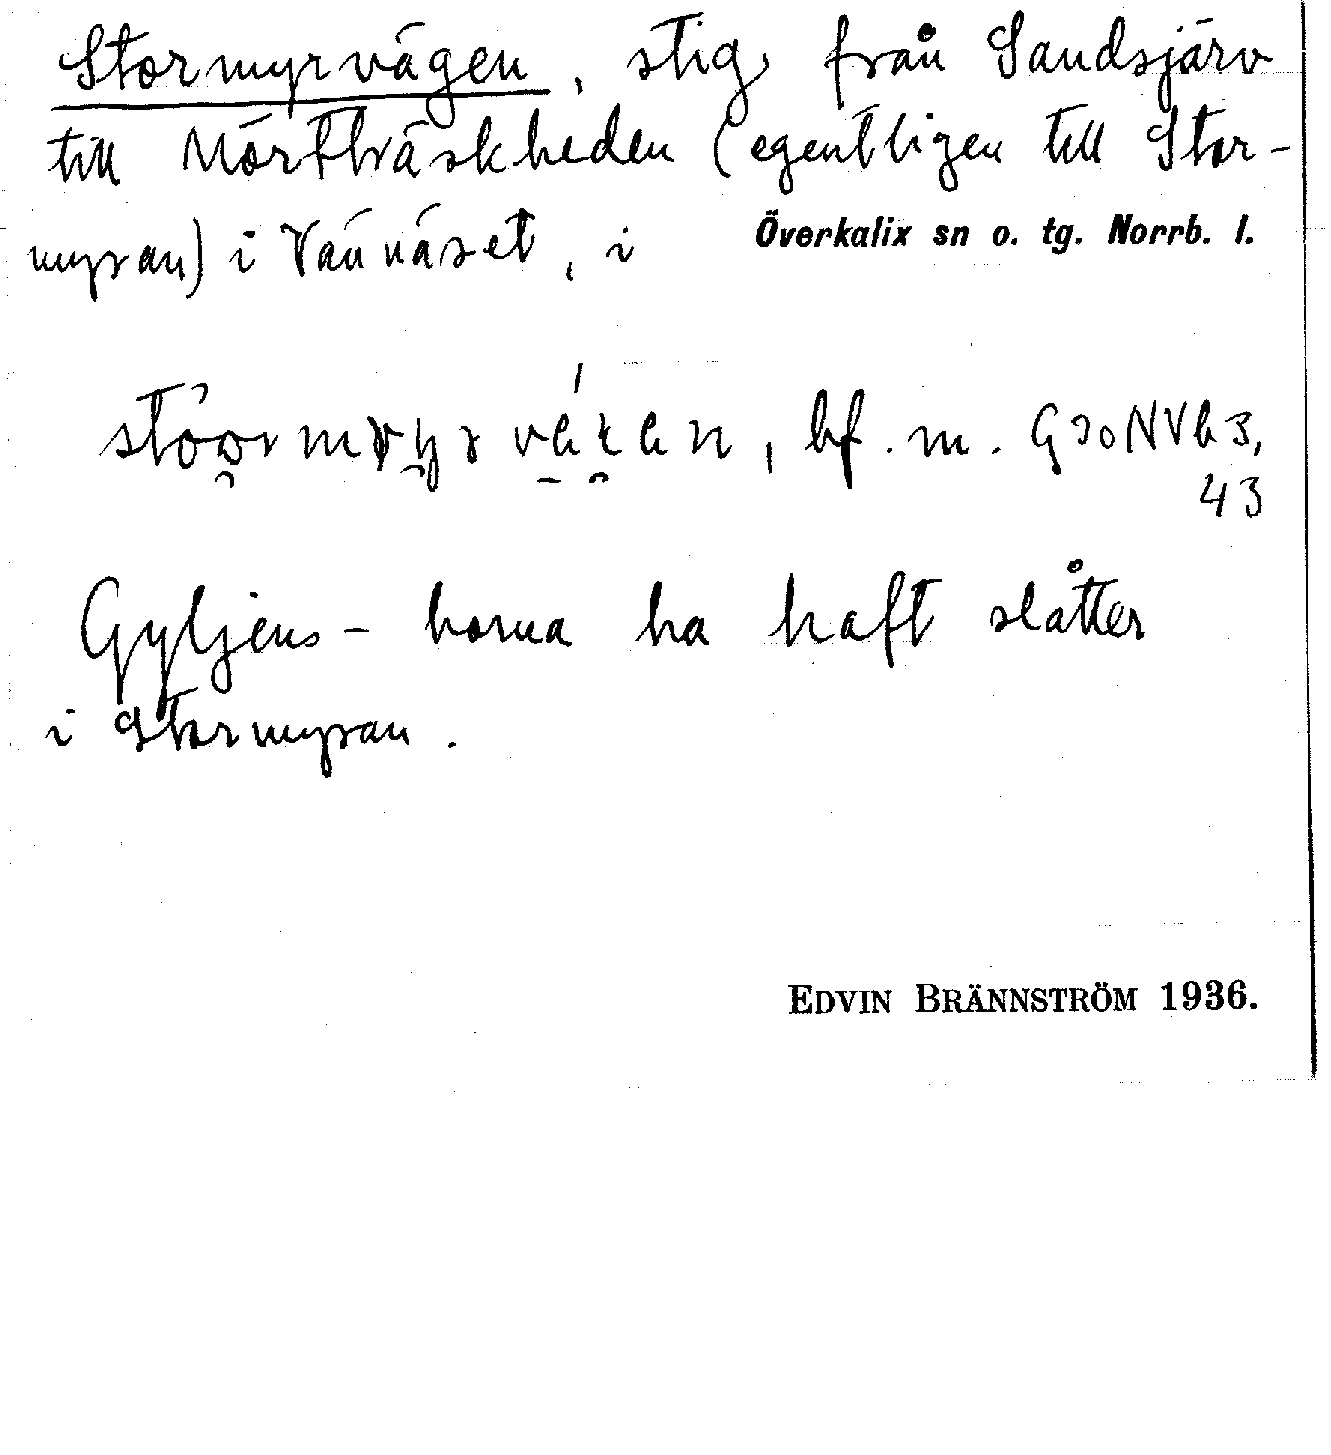 Stormyrvägen, stig från Sandsjärv
till Mörtträskheden (egentligen till Stor-
myran) i Vännäset, i Överkalix sn o. tg. Norrb. l.
bf. m.
43
Gyljens-borna ha haft slåtter
i Stormyran.
EDVIN BRÄNNSTRÖM 1936.